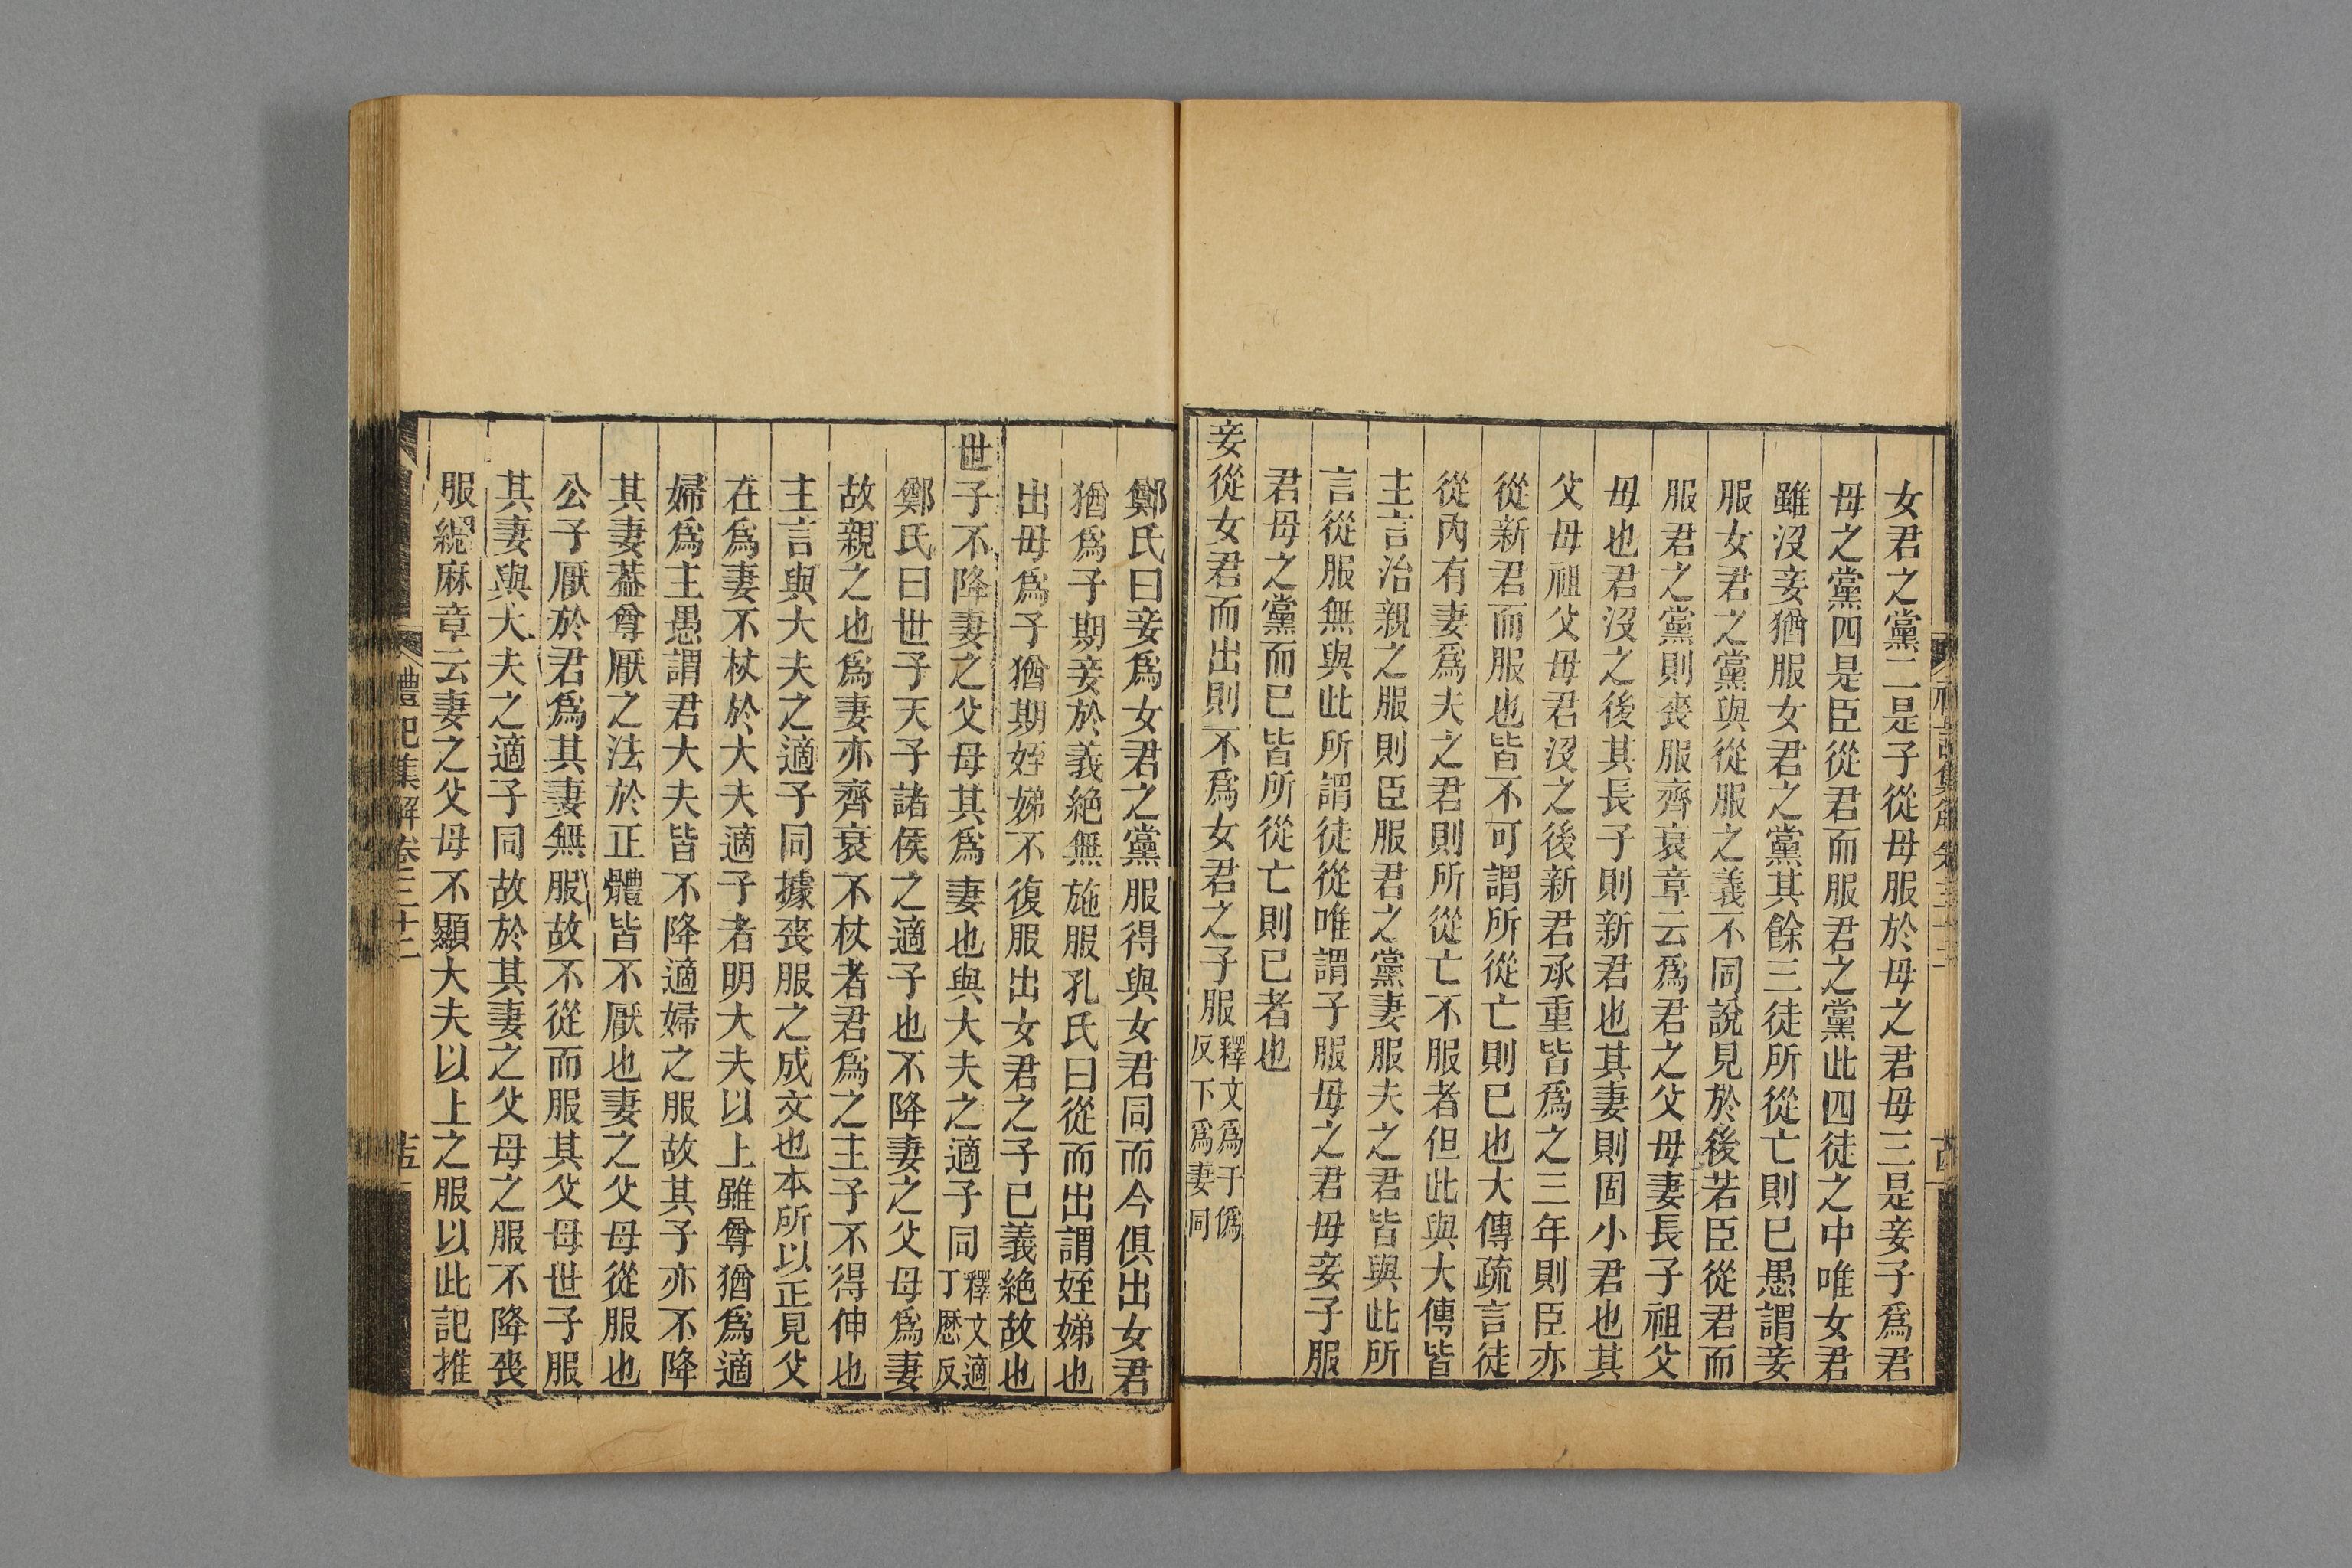 女君之黨二是子從母服於母之君母三是妾子爲君
母之黨四是臣從君而服君之黨此四徒之中唯女君
雖沒妾猶服女君之黨其餘三徒所從亡則已愚謂妾
服女君之黨與從服之義不同說見於後若臣從君而
服君之黨則喪服齊衰章云爲君之父母妻長子祖父
母也君沒之後其長子則新君也其妻則固小君也其
父母祖父母君沒之後新君承重皆爲之三年則臣亦
從新君而服也皆不可謂所從亡則已也大傳疏言徒
從內有妻爲夫之君則所從亡不服者但此與大傳皆
主言治親之服則臣服君之黨妻服夫之君皆與此所
言從服無與此所謂徒從唯謂子服母之君母妾子服
君母之黨而已皆所從亡則已者也
妾從女君而出則不爲女君之子服釋文爲于僞反下爲妻同
鄭氏曰妾爲女君之黨服得與女君同而今俱出女君
猶爲子期妾於義絕無施服孔氏曰從而出謂姪娣也
出母爲子猶期姪娣不復服出女君之子已義絕故也
世子不降妻之父母其爲妻也與大夫之適子同釋文適丁歷反
鄭氏曰世子天子諸侯之適子也不降妻之父母爲妻
故親之也爲妻亦齊衰不杖者君爲之主子不得伸也
主言與大夫之適子同據喪服之成文也本所以正見父
在爲妻不杖於大夫適子者明大夫以上雖尊猶爲適
婦爲主愚謂君大夫皆不降適婦之服故其子亦不降
其妻蓋尊厭之法於正體皆不厭也妻之父母從服也
公子厭於君爲其妻無服故不從而服其父母世子服
其妻與大夫之適子同故於其妻之父母之服不降喪
服緦麻章云妻之父母不顯大夫以上之服以此記推
禮記集解卷三十二
十五